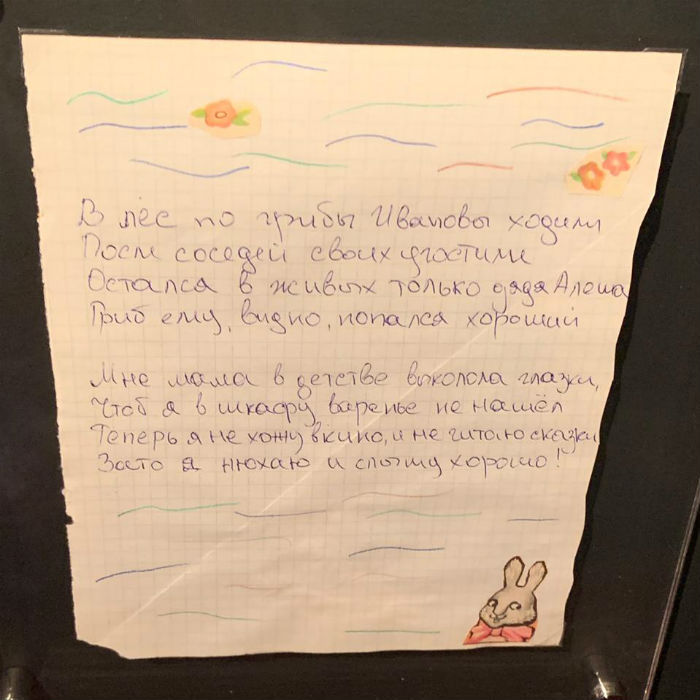 В лес по грибы Ивановы ходили
После соседей своих угостили
Остался в живых только дядя Алёша
Гриб ему, видно, попался хороший
Мне мама в детстве выколола глазки,
Чтоб я в шкафу варенье не нашёл
Теперь я не хожу в кино, и не читаю сказки
Зато я нюхаю и слышу хорошо!